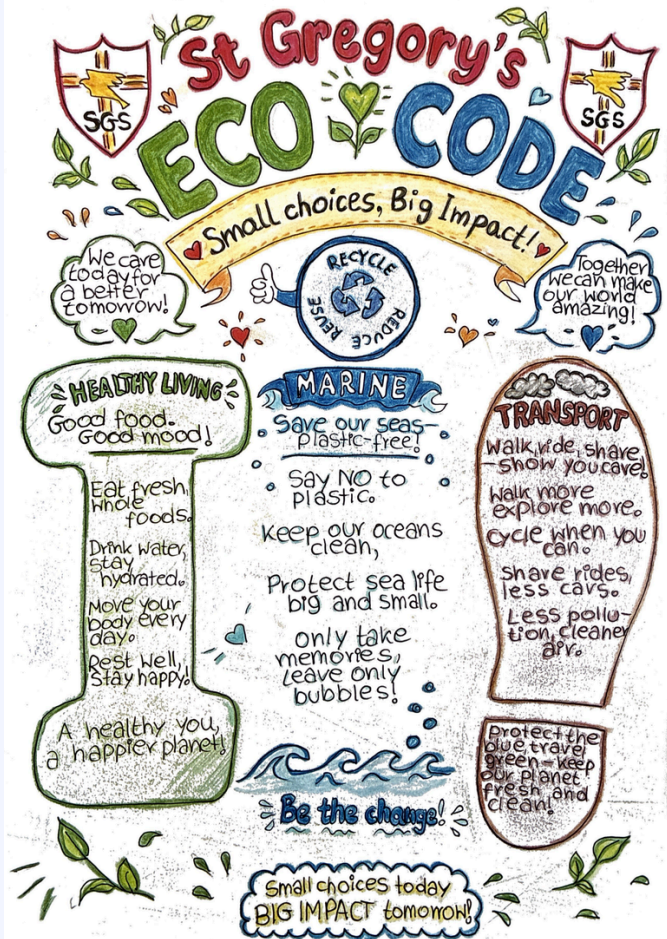 St Gregory's
SGS
SGS
ECO CODE
Small choices, Big Impact!
We care
today for
a better
tomorrow!
RECYCLE
REDUCE
REUSE
Together
we can make
our world
amazing!
HEALTHY LIVING
Good food.
Good mood!
Eat fresh,
whole
foods.
Drink water,
stay
hydrated.
Move your
body every
day.
Rest well,
stay happy!
A healthy you,
a happier planet!
MARINE
Save our seas-
plastic-free!
Say NO to
plastic.
Keep our oceans
clean,
Protect sea life
big and small.
only take
memories,
leave only
bubbles!
Be the change!
TRANSPORT
Walk, ride, share
-show you care!
Walk more
explore more.
cycle when you
can.
Share rides,
less cars.
Less pollu-
tion, cleaner
air.
Protect the
blue, travel
green-keep
our planet
fresh and
clean!
Small choices today
BIG IMPACT tomorrow!